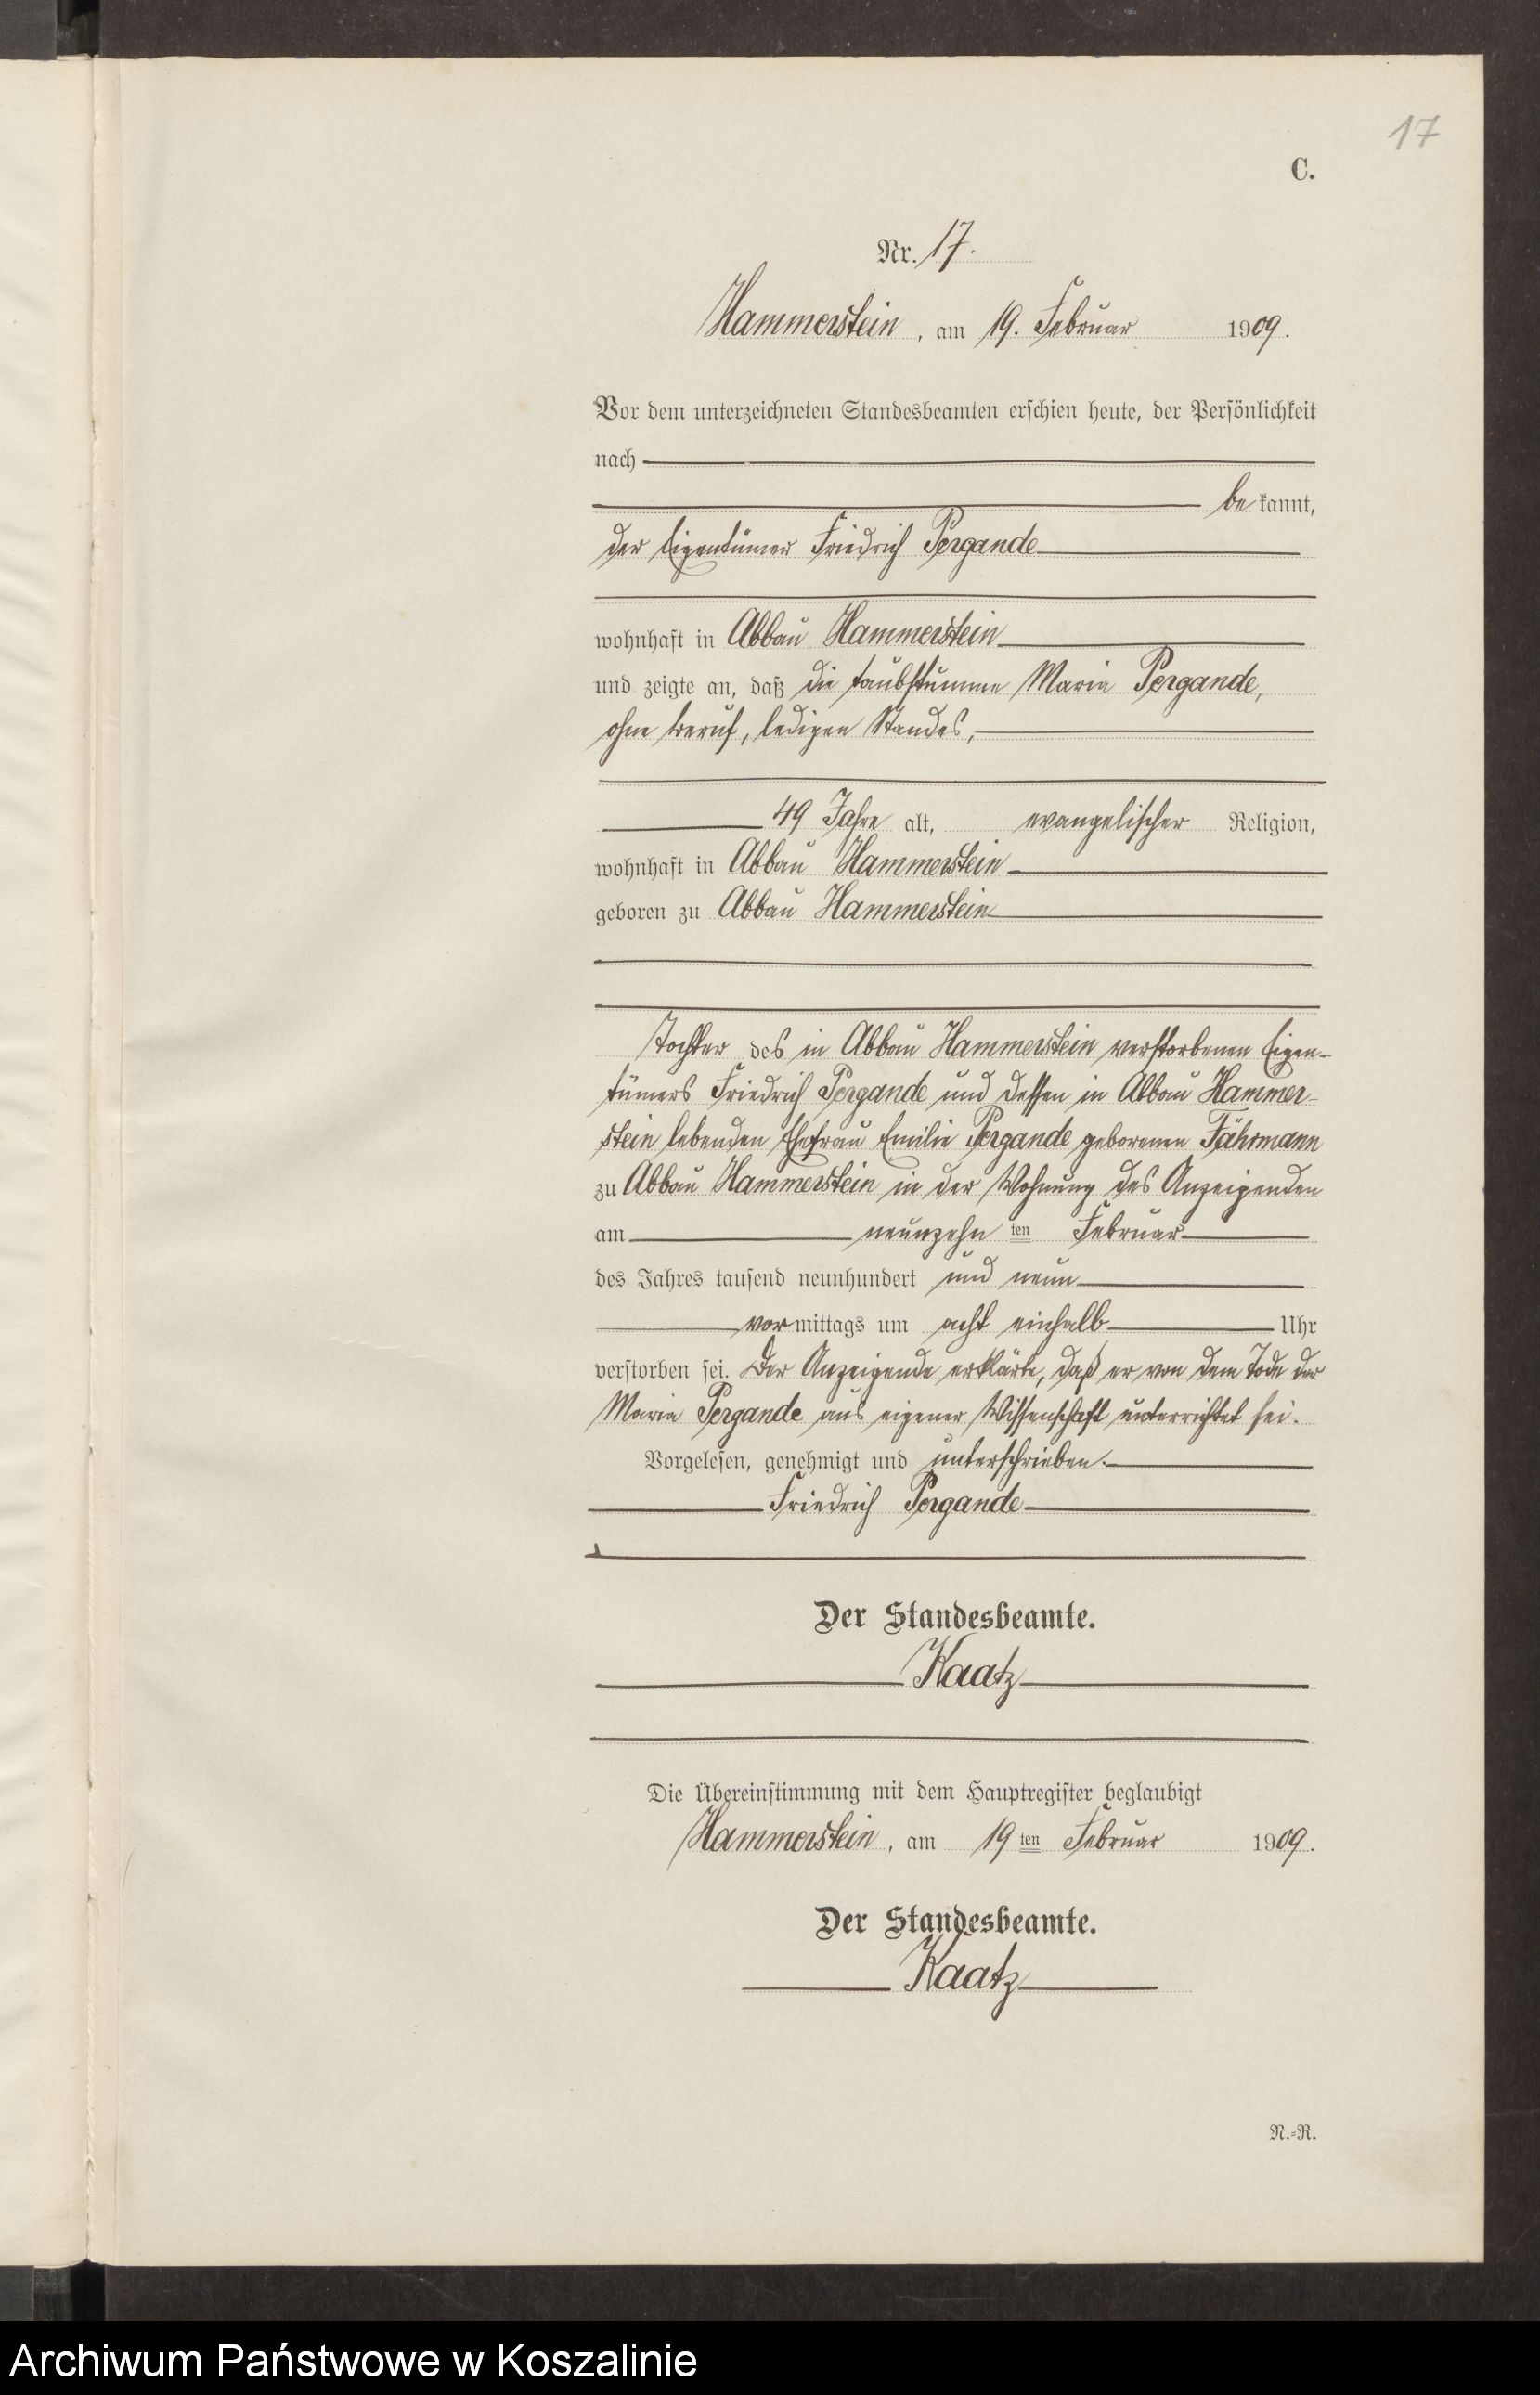 17
C.
Nr. 17.
Hammerstein, am 19. Februar 1909.
Vor dem unterzeichneten Standesbeamten erschien heute, der Persönlichkeit
nach
be kannt,
der Eigentümer Friedrich Pergande
wohnhaft in Abbau Hammerstein
und zeigte an, daß die taubstumme Maria Pergande,
ohne Beruf, ledigen Standes,
49 Jahre alt, evangelischer Religion,
wohnhaft in Abbau Hammerstein
geboren zu Abbau Hammerstein
Tochter des in Abbau Hammerstein verstorbenen Eigen-
tümers Friedrich Pergande und dessen in Abbau Hammer-
stein lebenden Ehefrau Emilie Pergande geborenen Fährmann
zu Abbau Hammerstein in der Wohnung des Anzeigenden
am neunzehn ten Februar
des Jahres tausend neunhundert und neun
vor mittags um acht einhalb Uhr
verstorben sei. Der Anzeigende erklärte, daß er von dem Tode der
Maria Pergande aus eigener Wissenschaft unterrichtet sei.
Vorgelesen, genehmigt und unterschrieben.
Friedrich Pergande
Der Standesbeamte.
Kaatz
Die Übereinstimmung mit dem Hauptregister beglaubigt
Hammerstein, am 19 ten Februar 1909.
Der Standesbeamte.
Kaatz
N.-R.
Archiwum Państwowe w Koszalinie